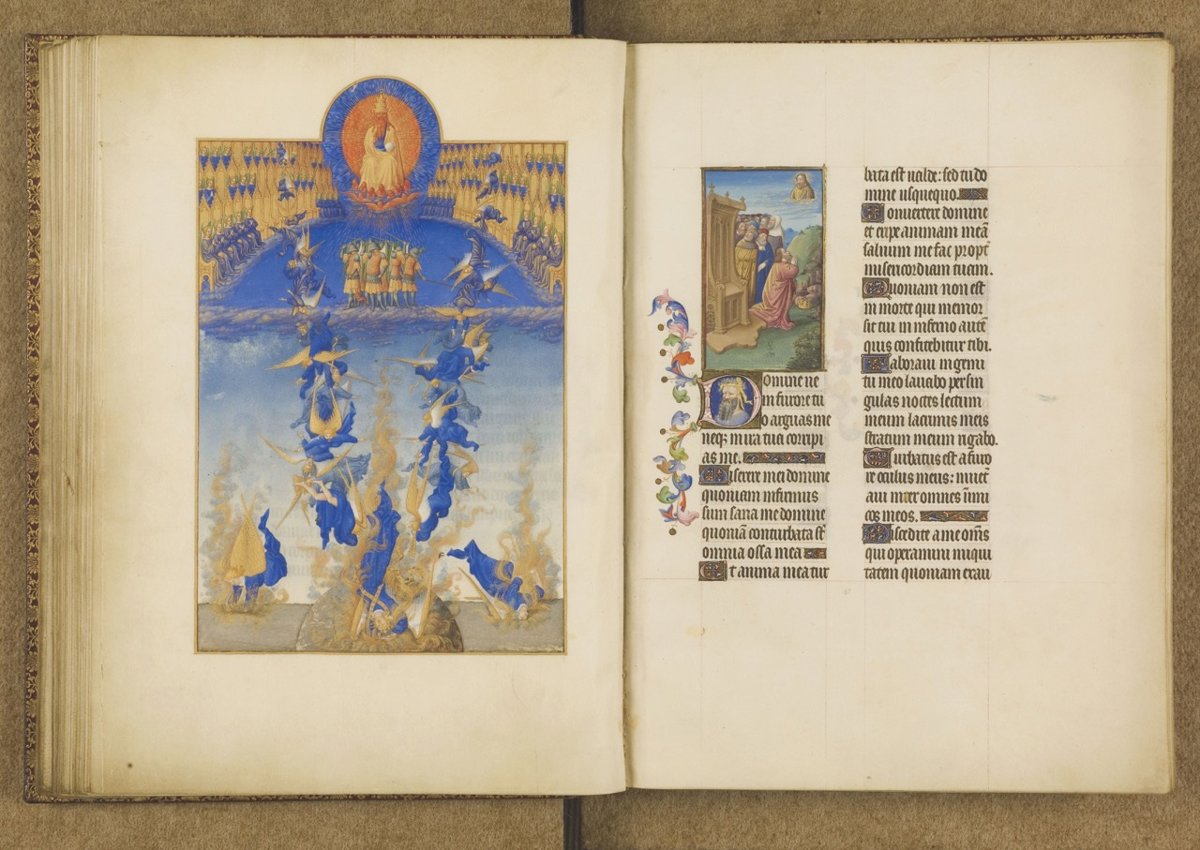 omine ne
in furore tu
o arguas me
neq; in ira tua corripi
as me.
iserere mei domine
quoniam infirmus
sum sana me domine
quoniā conturbata st̄
omnia ossa mea
Et anima mea tur
bata est ualde: sed tu do
mine usquequo.
Conuertere domine
et eripe animam meā
saluum me fac propt̄
misericordiam tuam.
Quoniam non est
in morte qui memor
sit tui in inferno autē
quis confitebitur tibi.
Laboraui in gemi
tu meo lauabo per sin
gulas noctes lectum
meum lacrimis meis
stratum meum rigabo.
Turbatus est a furo
re oculus meus: inuet̄
aui inter omnes inimi
cos meos.
Discedite a me om̄s
qui operamini iniqui
tatem quoniam exau